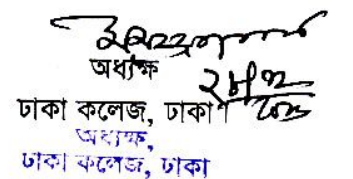 অধ্যক্ষ
ঢাকা কলেজ, ঢাকা।
অধ্যক্ষ,
ঢাকা কলেজ, ঢাকা